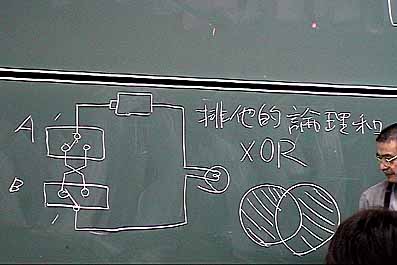 排他的論理和
XOR
A
B